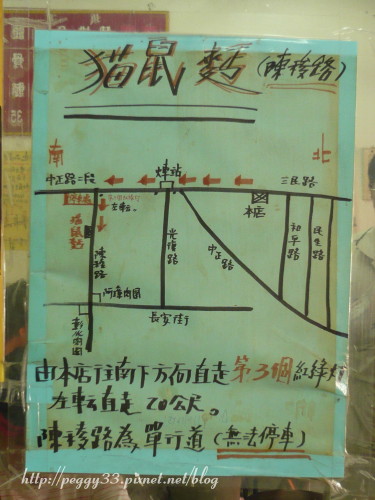 貓鼠麵(陳稜路)
南
北
中正路二段
火車站
三民路
左轉。
貓鼠麵
陳稜路
光復路
中正路
和平路
民生路
阿璋肉圓
長安街
由本店往南下方向直走第3個紅綠灯
左転直走20公尺。
陳稜路為單行道(無法停車)
http://peggy33.pixnet.net/blog